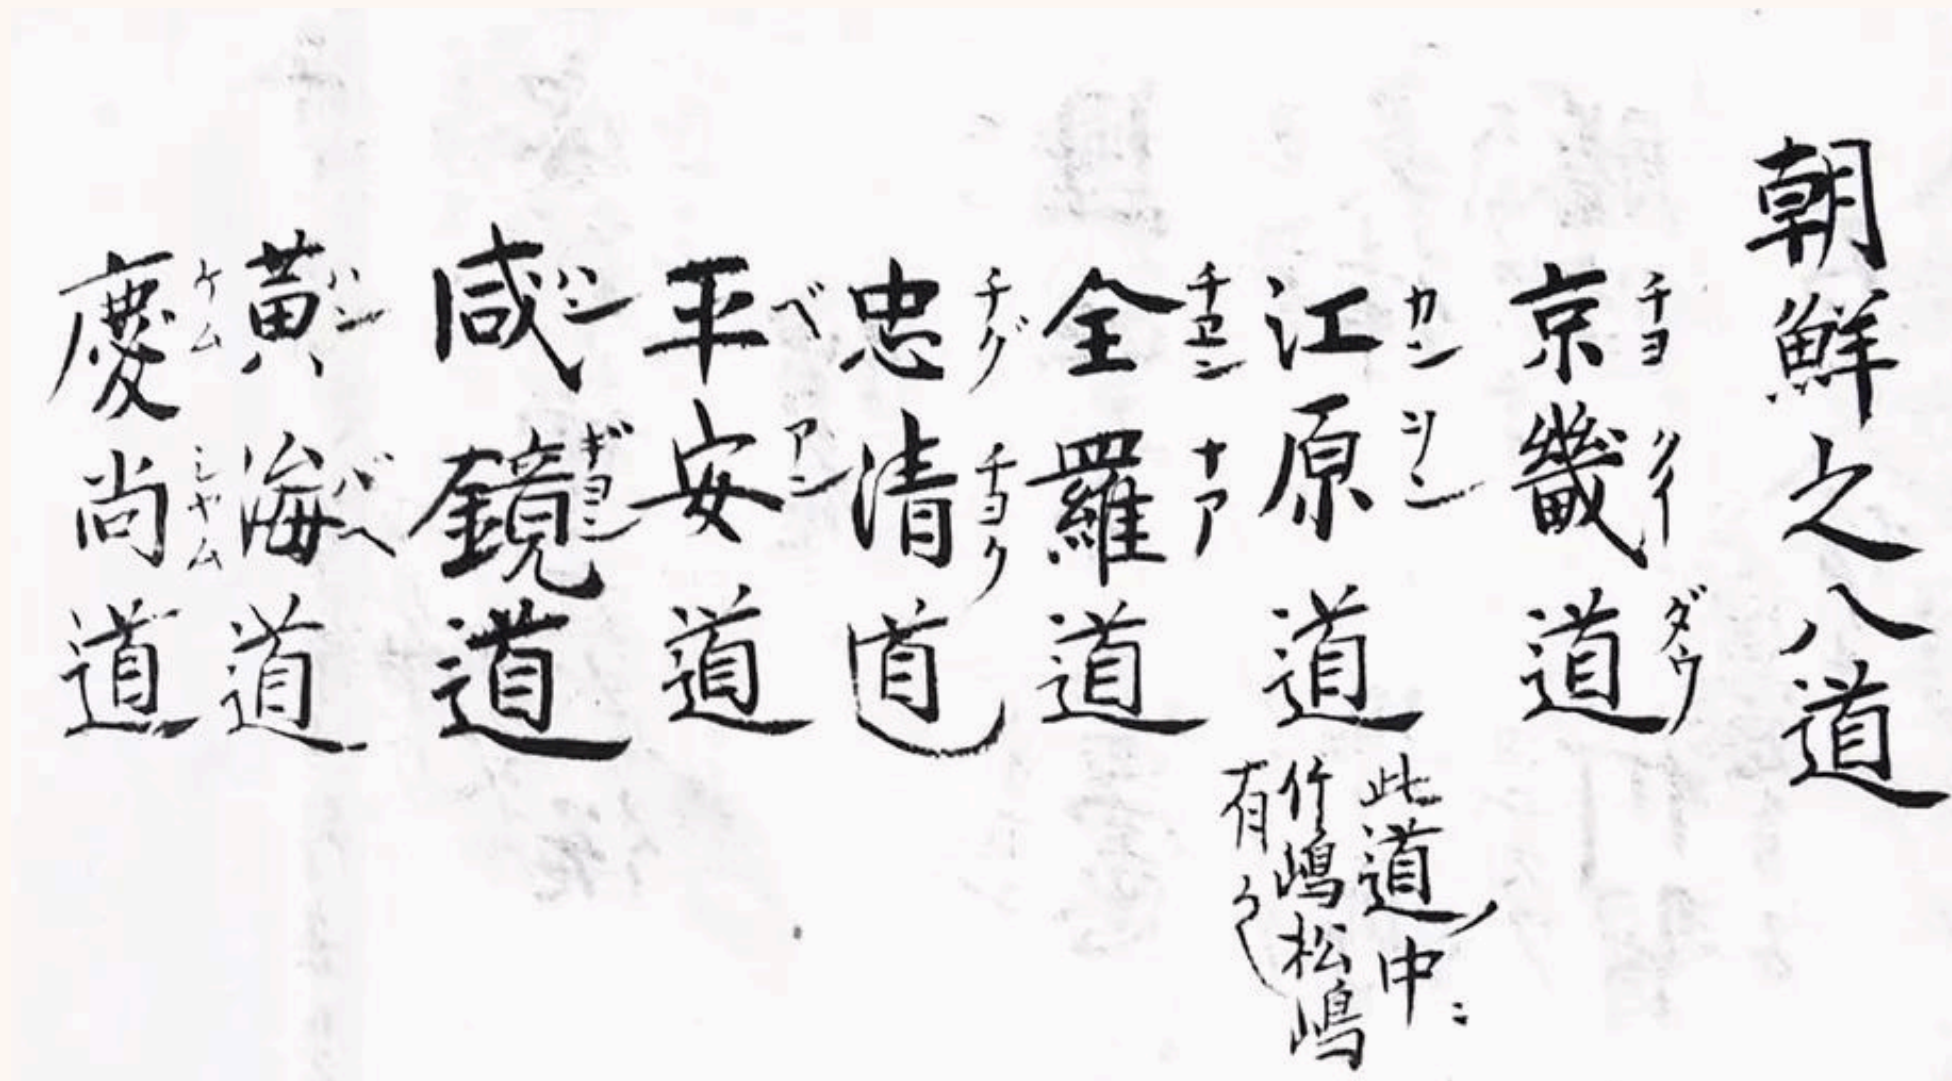 朝鮮之八道
京畿道
チヨ クイ ダウ
江原道
カン ソン
此道ノ中ニ
竹嶋松嶋
有之
全羅道
チヱン ナア
忠清道
チグ チヨク
平安道
ベ アン
咸鏡道
ハン ギヨン
黃海道
ハン バヘ
慶尚道
ケム シヤム